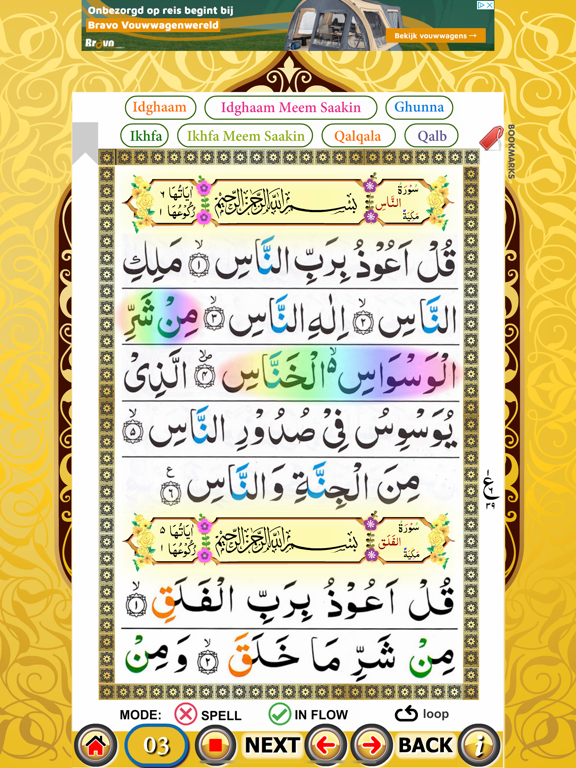 Onbezorgd op reis begint bij
Bravo Vouwwagenwereld
Bravo
Bekijk vouwwagens →
Idghaam Idghaam Meem Saakin Ghunna
Ikhfa Ikhfa Meem Saakin Qalqala Qalb
BOOKMARKS
سُوْرَةُ النَّاسِ مَكِّيَّةٌ
بِسْمِ اللهِ الرَّحْمٰنِ الرَّحِيْمِ
اٰيَاتُهَا ٦
رُكُوْعُهَا ١
قُلْ اَعُوْذُ بِرَبِّ النَّاسِ ۙ﴿١﴾ مَلِكِ
النَّاسِ ۙ﴿٢﴾ اِلٰهِ النَّاسِ ۙ﴿٣﴾ مِنْ شَرِّ
الْوَسْوَاسِ ۙ۬ الْخَنَّاسِ ۪ۙ﴿٤﴾ الَّذِىْ
يُوَسْوِسُ فِىْ صُدُوْرِ النَّاسِ ۙ﴿٥﴾
مِنَ الْجِنَّةِ وَالنَّاسِ ﴿٦﴾ ع
سُوْرَةُ الْفَلَقِ مَكِّيَّةٌ
بِسْمِ اللهِ الرَّحْمٰنِ الرَّحِيْمِ
اٰيَاتُهَا ٥
رُكُوْعُهَا ١
قُلْ اَعُوْذُ بِرَبِّ الْفَلَقِ ۙ﴿١﴾
مِنْ شَرِّ مَا خَلَقَ ۙ﴿٢﴾ وَمِنْ
MODE: SPELL IN FLOW loop
03 NEXT BACK i